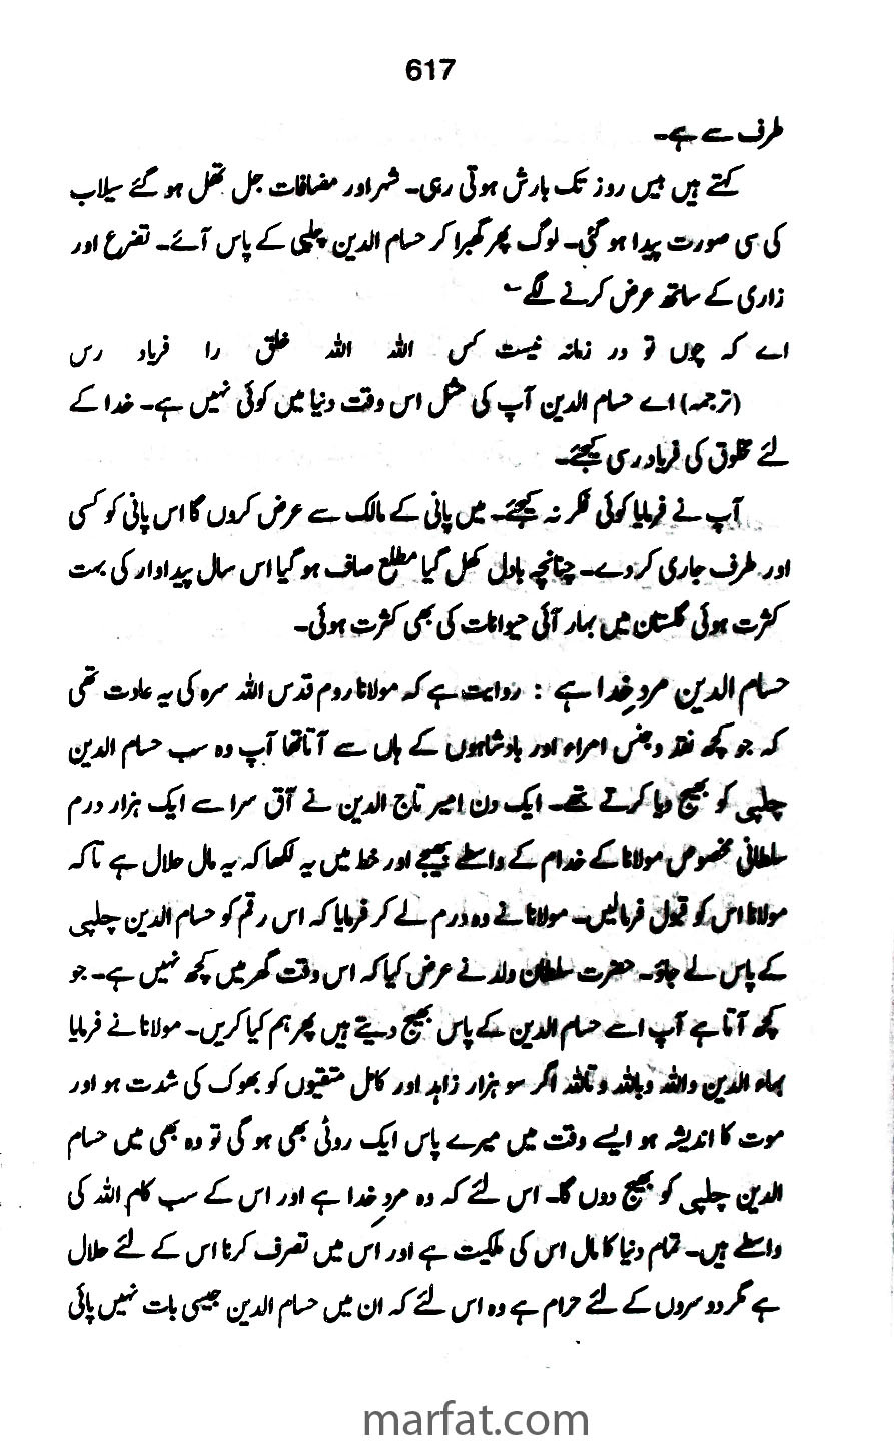 617
طرف سے ہے۔
کہتے ہیں بیس روز تک بارش ہوتی رہی۔ شہر اور مضافات جل تھل ہو گئے سیلاب
کی سی صورت پیدا ہو گئی۔ لوگ پھر گھبرا کر حسام الدین چلپی کے پاس آئے۔ تضرع اور
زاری کے ساتھ عرض کرنے لگے
اے کہ چوں تو در زمانہ نیست کس اللہ اللہ خلق را فریاد رس
(ترجمہ) اے حسام الدین آپ کی مثل اس وقت دنیا میں کوئی نہیں ہے۔ خدا کے
لئے مخلوق کی فریاد رسی کیجئے۔
آپ نے فرمایا کوئی فکر نہ کیجئے۔ میں پانی کے مالک سے عرض کروں گا اس پانی کو کسی
اور طرف جاری کر دے۔ چنانچہ بادل کھل گیا مطلع صاف ہو گیا اس سال پیداوار کی بہت
کثرت ہوئی گلستان میں بہار آئی حیوانات کی بھی کثرت ہوئی۔
حسام الدین مردِ خدا ہے : روایت ہے کہ مولانا روم قدس اللہ سرہ کی یہ عادت تھی
کہ جو کچھ نقد و جنس امراء اور بادشاہوں کے ہاں سے آتا تھا آپ وہ سب حسام الدین
چلپی کو بھیج دیا کرتے تھے۔ ایک دن امیر تاج الدین نے آق سرا سے ایک ہزار درم
سلطانی مخصوص مولانا کے خدام کے واسطے بھیجے اور خط میں یہ لکھا کہ یہ مال حلال ہے تاکہ
مولانا اس کو قبول فرمالیں۔ مولانا نے وہ درم لے کر فرمایا کہ اس رقم کو حسام الدین چلپی
کے پاس لے جاؤ۔ حضرت سلطان ولد نے عرض کیا کہ اس وقت گھر میں کچھ نہیں ہے۔ جو
کچھ آتا ہے آپ اسے حسام الدین کے پاس بھیج دیتے ہیں پھر ہم کیا کریں۔ مولانا نے فرمایا
بہاء الدین واللہ و باللہ و تاللہ اگر سو ہزار زاہد اور کامل متقیوں کو بھوک کی شدت ہو اور
موت کا اندیشہ ہو ایسے وقت میں میرے پاس ایک روٹی بھی ہو گی تو وہ بھی میں حسام
الدین چلپی کو بھیج دوں گا۔ اس لئے کہ وہ مردِ خدا ہے اور اس کے سب کام اللہ کی
واسطے ہیں۔ تمام دنیا کا مال اس کی ملکیت ہے اور اس میں تصرف کرنا اس کے لئے حلال
ہے مگر دوسروں کے لئے حرام ہے وہ اس لئے کہ ان میں حسام الدین جیسی بات نہیں پائی
marfat.com